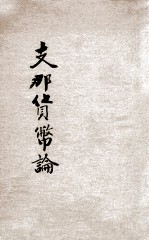 支那貨幣論